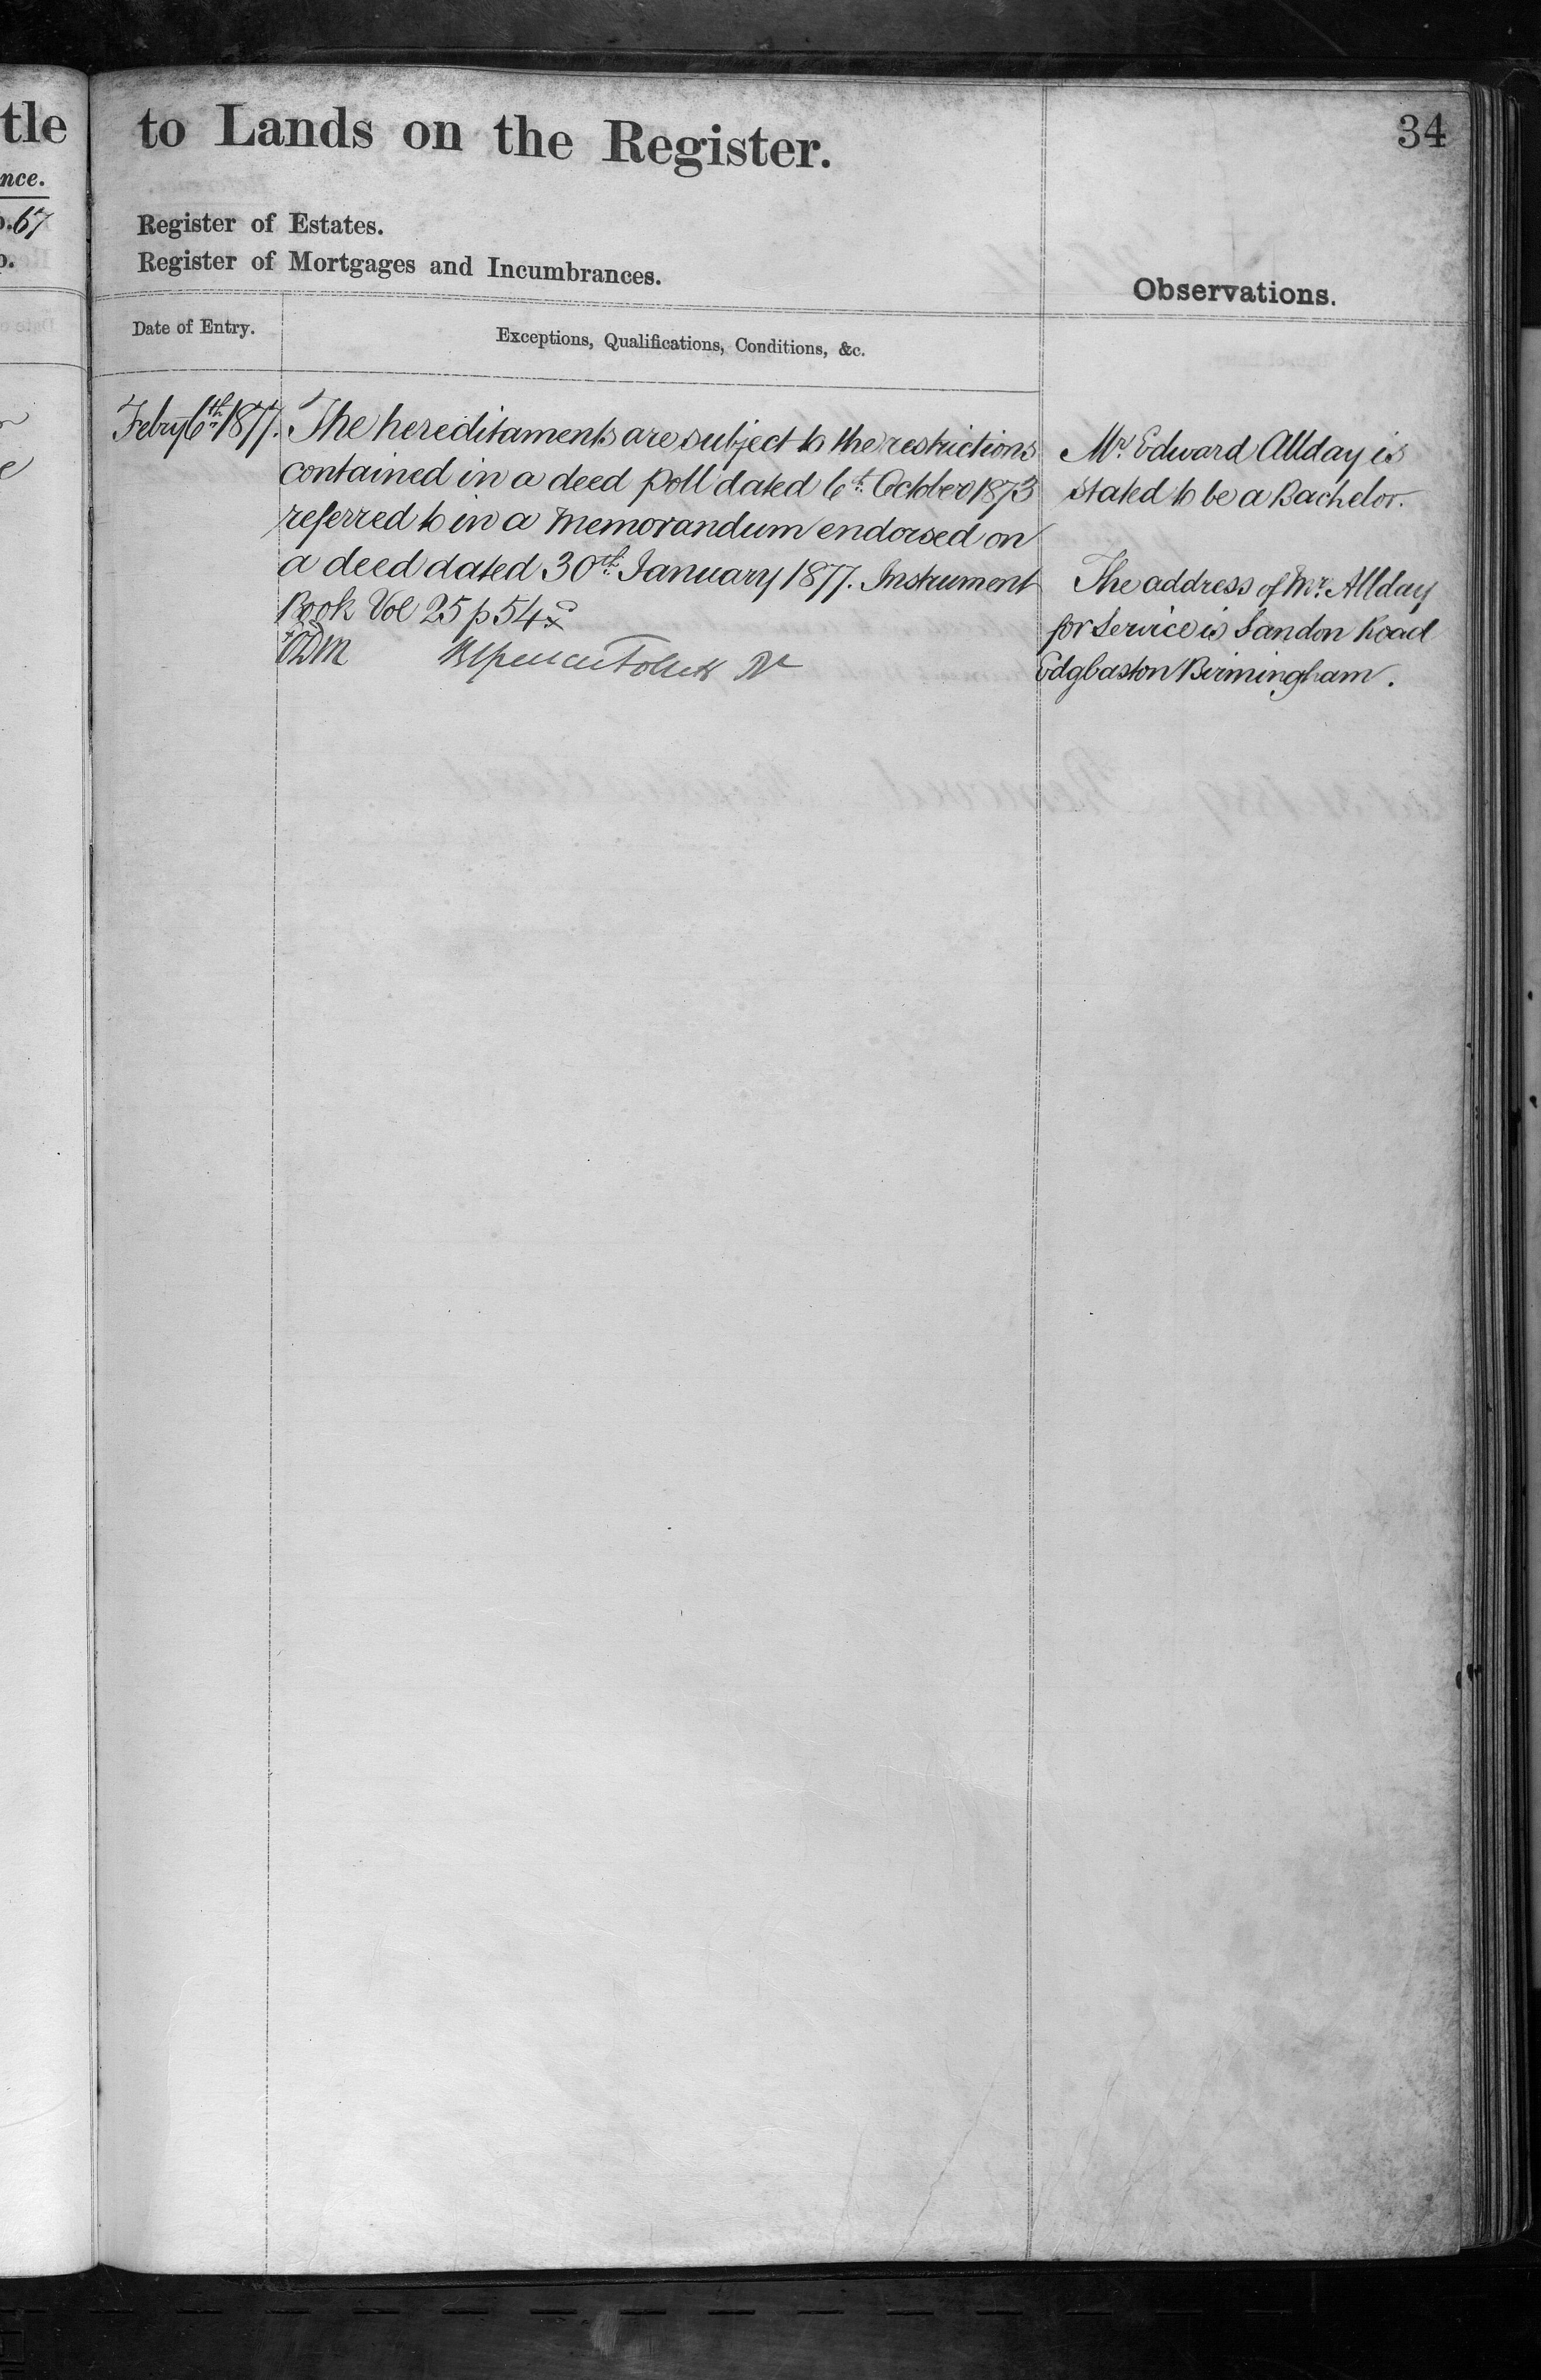 tle
nce.
p.67
p.
to Lands on the Register.
34
Register of Estates.
Register of Mortgages and Incumbrances.
Observations.
Date of Entry.
Exceptions, Qualifications, Conditions, &c.
Febry 6th 1877. The hereditaments are subject to the restrictions
contained in a deed poll dated 6th October 1873
referred to in a memorandum endorsed on
a deed dated 30th January 1877. Instrument
Book Vol 25 p 54
Mr Edward Allday is
stated to be a Bachelor.
The address of Mr Allday
for Service is Sandon Road
Edgbaston Birmingham.